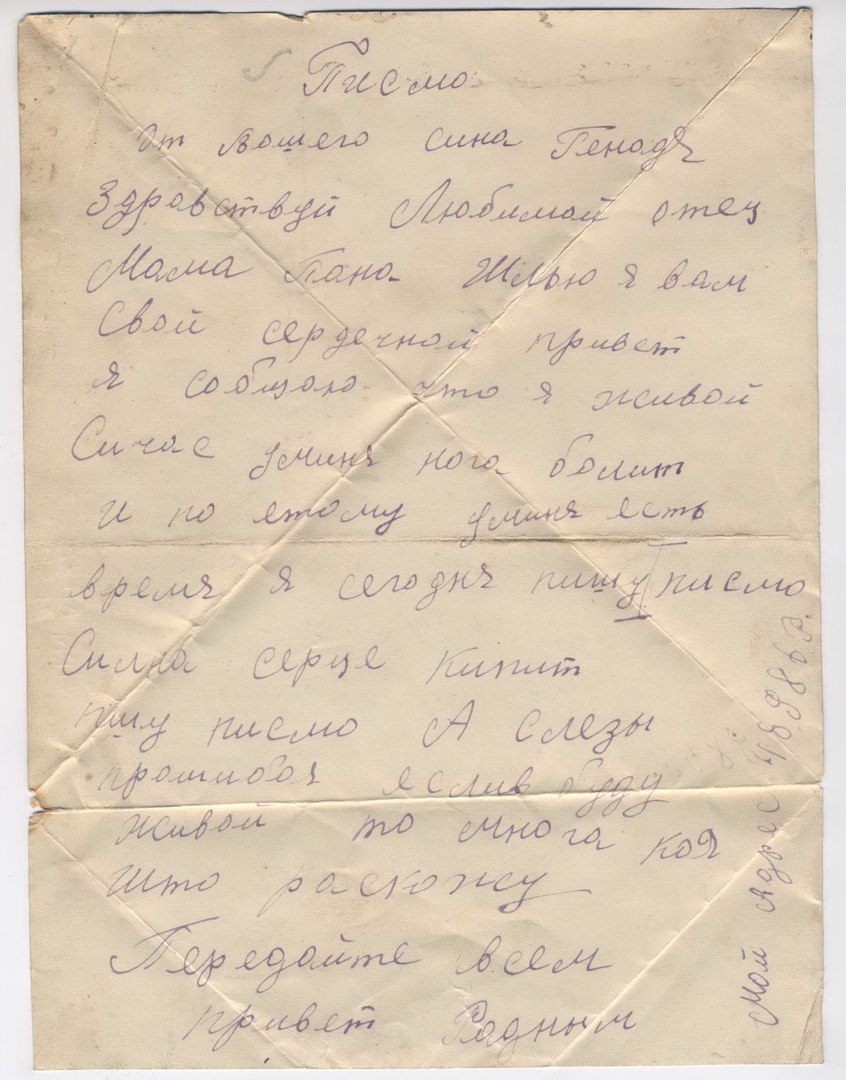 Писмо
от вашего сина Генадя
Здравствуй Любимой отец
Мама Пана Шлью я вам
Свой сердечной привет
я собщаю что я живой
Сичас уминя нога болит
и по етому уминя есть
время я сегодня пишу писмо
Силна серце кипит
пишу писмо А слезы
прошибоя яслив буду
живой то многа коя
што раскожу
Передайте всем
привет Радным
Мой Адрес